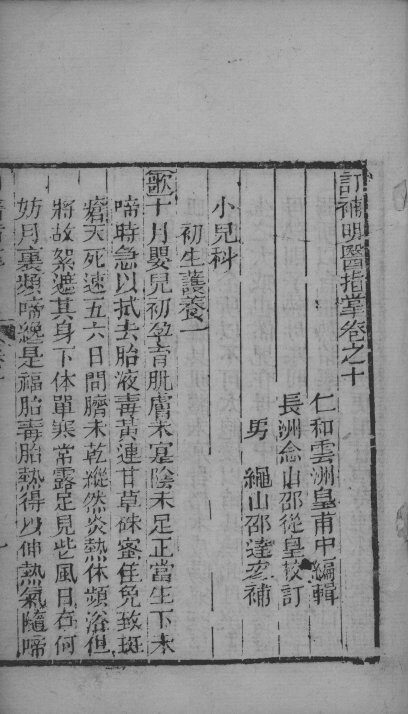 訂補明醫指掌卷之十
仁和雲洲皇甫中編輯
長洲念山邵從皇校訂
男 繩山邵達參補
小兒科
初生護養一
歌十月嬰兒初孕育肌膚未寔陰未足正當生下未
啼時急以拭去胎液毒黃連甘草硃蜜佳免致斑
瘡夭死速五六日間臍未乾縱然炎熱休頻浴但
將故絮遮其身下体單寒常露足見些風日有何
妨月裏頻啼纔是福胎毒胎熱得以伸熱氣隨啼